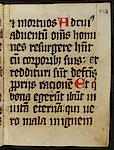 et mortuos Ad cuiꝰ
aduentū om̄s homi
nes resurgere hn̄t
cū corporibꝫ suis: et
reddituri sūt de fc̄is
ꝓprijs racionē Et q
bona egerūt ibūt in
uitā eternā: qui ue
ro mala in ignem